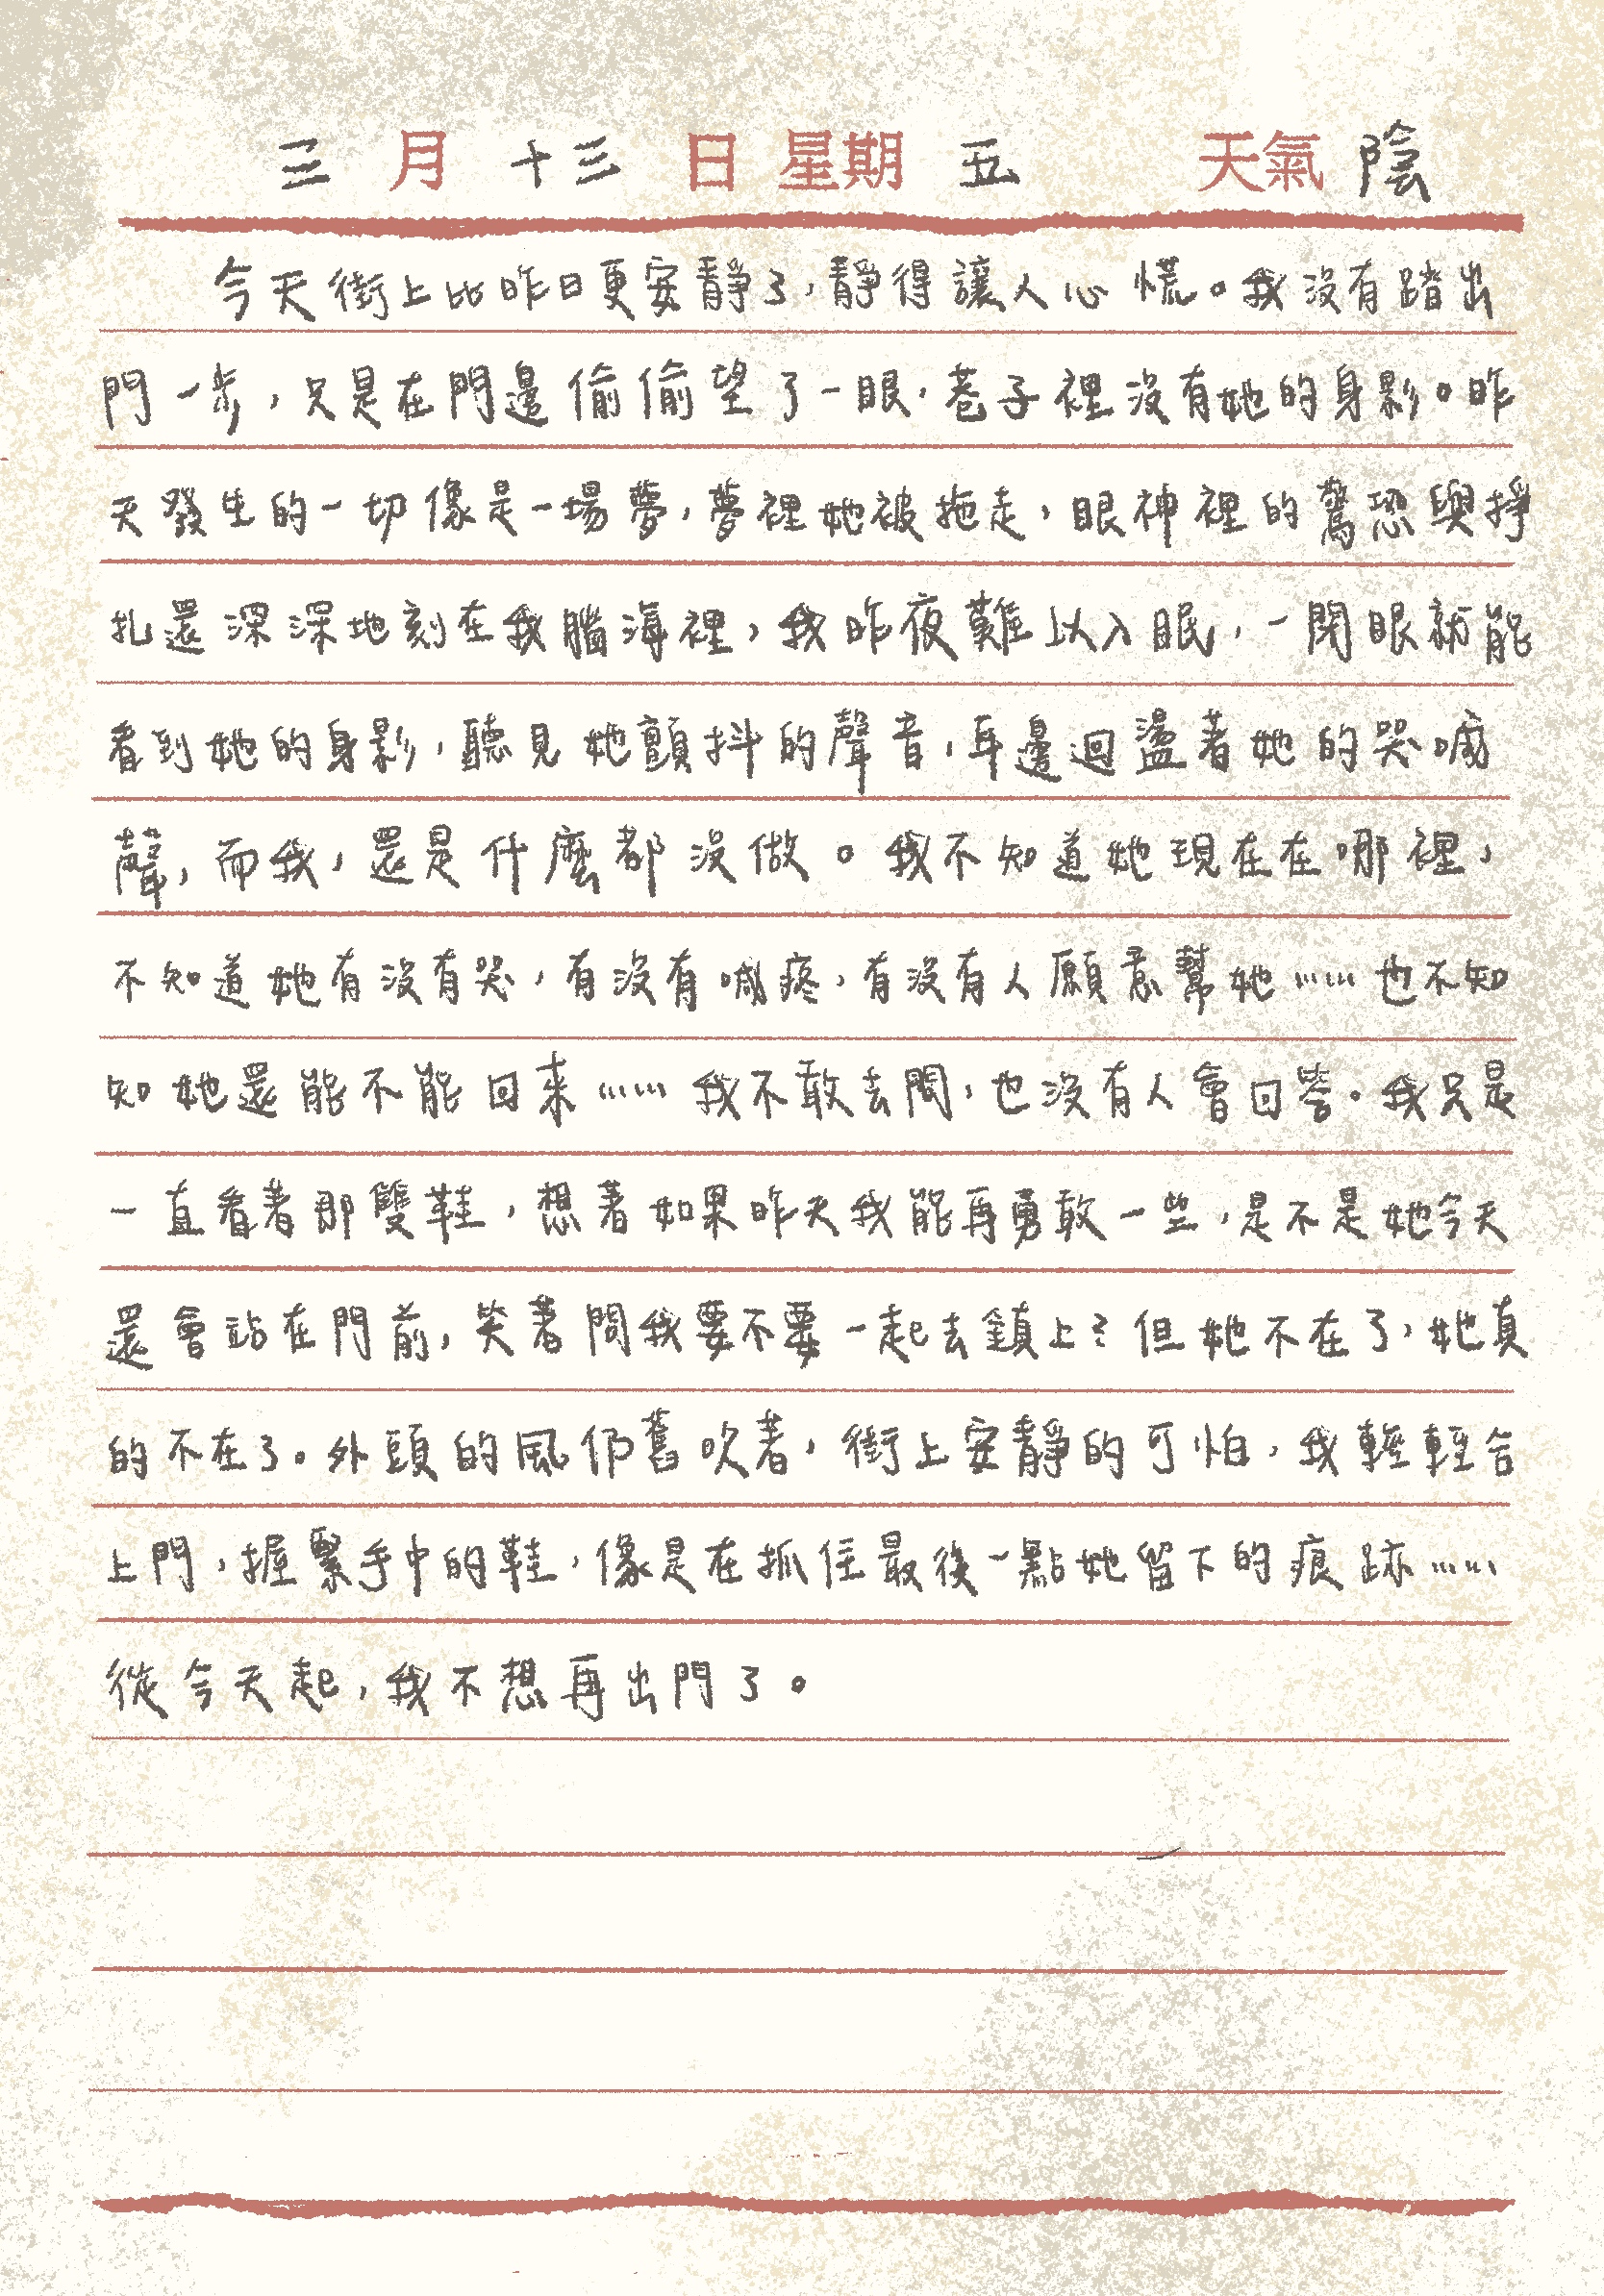 三月十三日星期五 天氣陰
今天街上比昨日更安靜了,靜得讓人心慌。我沒有踏出
門一步,只是在門邊偷偷望了一眼,巷子裡沒有她的身影。昨
天發生的一切像是一場夢,夢裡她被拖走,眼神裡的驚恐與掙
扎還深深地刻在我腦海裡,我昨夜難以入眠,一閉眼就能
看到她的身影,聽見她顫抖的聲音,耳邊迴盪著她的哭喊
聲,而我,還是什麼都沒做。我不知道她現在在哪裡,
不知道她有沒有哭,有沒有喊疼,有沒有人願意幫她……也不知
知她還能不能回來……我不敢去問,也沒有人會回答。我只是
一直看著那雙鞋,想著如果昨天我能再勇敢一些,是不是她今天
還會站在門前,笑著問我要不要一起去鎮上?但她不在了,她真
的不在了。外頭的風仍舊吹著,街上安靜的可怕,我輕輕合
上門,握緊手中的鞋,像是在抓住最後一點她留下的痕跡……
從今天起,我不想再出門了。